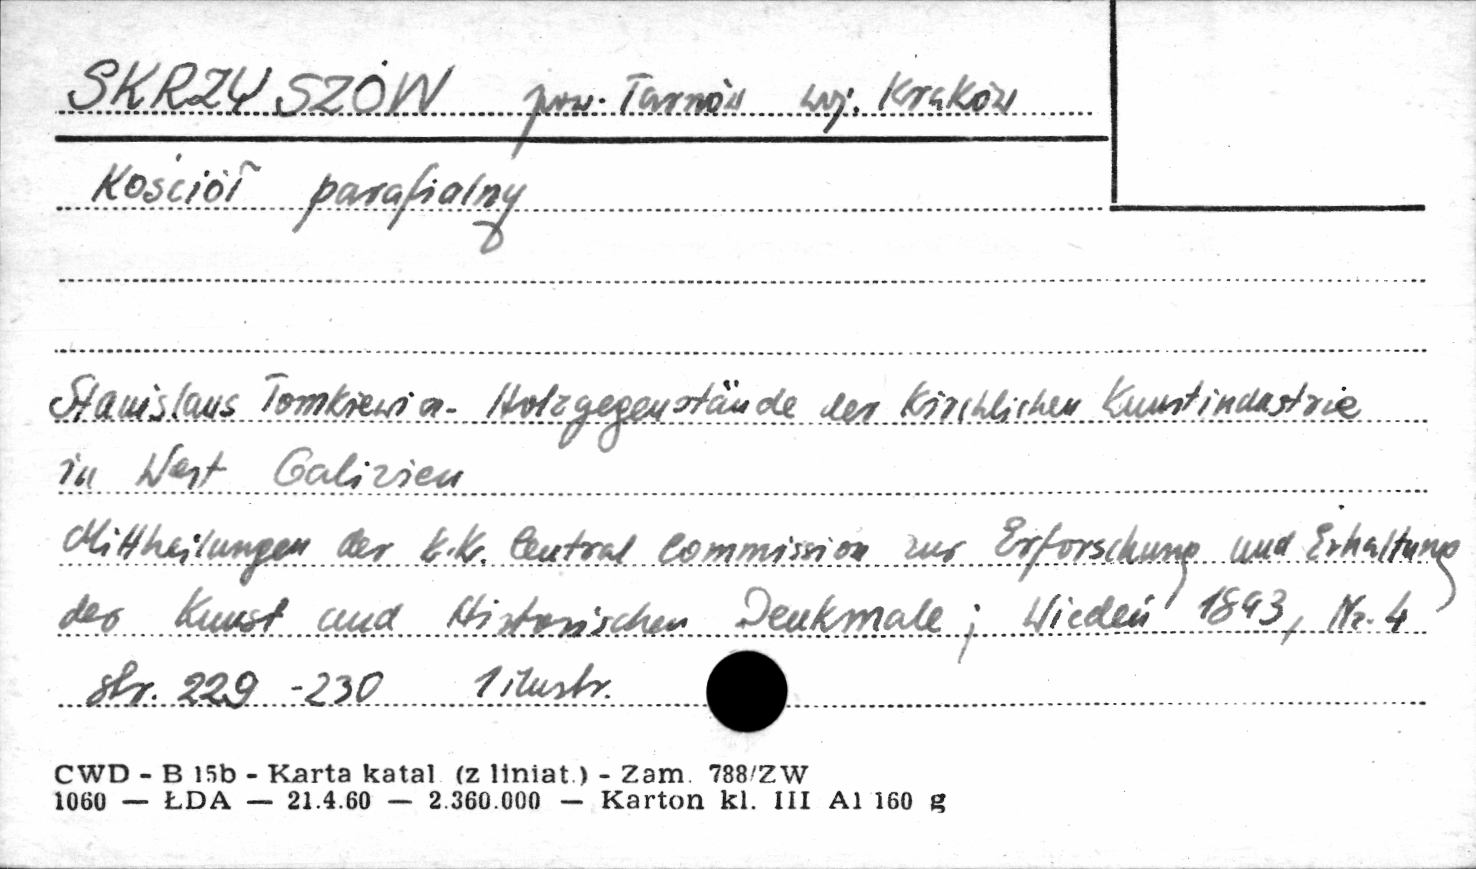 SKRZYSZÓW pow. Tarnów woj. Kraków
Kościół parafialny
Stanislaus Tomkiewicz - Holzgegenstände der kirchlichen Kunstindustrie
in West Galizien
Mittheilungen der k.k. Central Commission zur Erforschung und Erhaltung
der Kunst und Historischen Denkmale; Wiedeń 1893, Nr. 4
str. 229 - 230 1 ilustr.
CWD - B 15b - Karta katal. (z liniat.) - Zam. 788/ZW
1060 — ŁDA — 21.4.60 — 2.360.000 — Karton kl. III A1 160 g